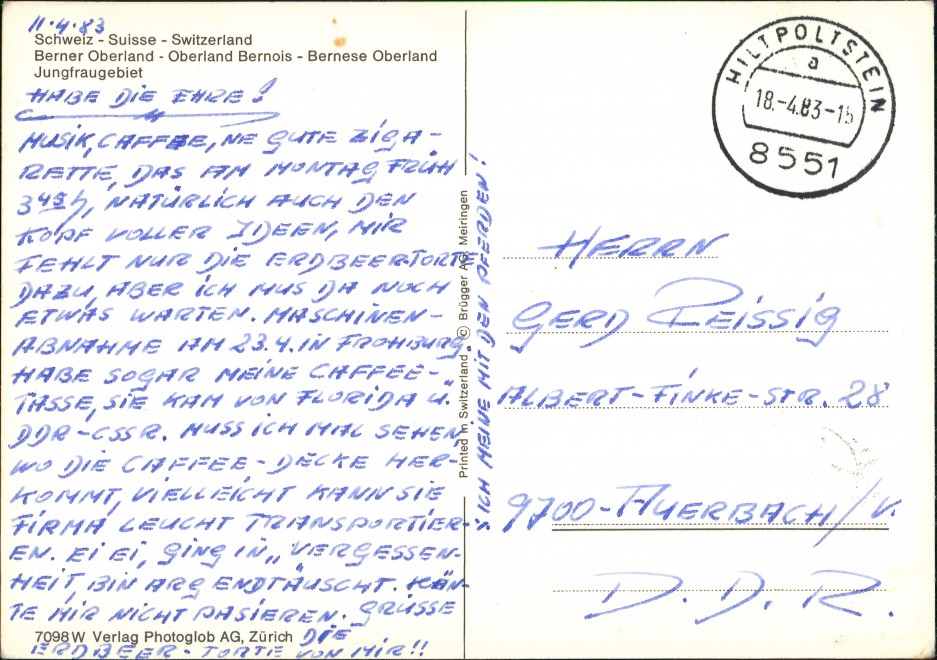 11.4.83
Schweiz - Suisse - Switzerland
Berner Oberland - Oberland Bernois - Bernese Oberland
Jungfraugebiet
HABE DIE EHRE!
MUSIK, CAFFEE, NE GUTE ZIGA-
RETTE, DAS AM MONTAG FRÜH
3 45 h, NATÜRLICH AUCH DEN
KOPF VOLLER IDEEN, MIR
FEHLT NUR DIE ERDBEERTORTE
DAZU, ABER ICH MUS DA NOCH
ETWAS WARTEN. MASCHINEN-
ABNAHME AM 23.4. IN FROHBURG.
HABE SOGAR MEINE CAFFEE-
TASSE, SIE KAM VON FLORIDA U.
DDR-CSSR. MUSS ICH MAL SEHEN,
WO DIE CAFFEE-DECKE HER-
KOMMT, VIELLEICHT KANN SIE
FIRMA LEUCHT TRANSPORTIER-
EN. EI EI, GING IN „VERGESSEN-
HEIT, BIN ARG ENDTÄUSCHT. KÄN-
TE MIR NICHT PASIEREN. GRÜSSE
DIE
ERDBEER-TORTE VON MIR!!
7098W Verlag Photoglob AG, Zürich
Printed in Switzerland © Brügger AG, Meiringen
ICH MEINE MIT DEN PFERDEN!
HILTPOLTSTEIN
a
18.-4.83-15
8551
HERRN
GERD REISSIG
ALBERT-FINKE-STR. 28
9700-AUERBACH/V.
D. D. R.